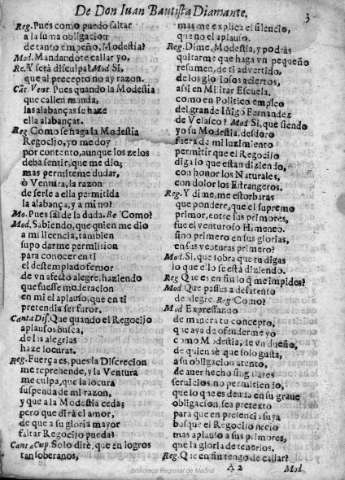 De Don Iuan Bautista Diamante.
3
Reg. Pues como puedo faltar
a la suma obligacion
de tanto empeño, Modestia?
Mod. Mandandote callar yo.
Re. Y serà disculpa? Mod. Si,
que al precepto no ay razon.
Cãt. Vent. Pues quando la Modestia
que callen manda,
las alabanças se haze
ella alabanças.
Reg. Como se haga la Modestia
Regocijo, yo me doy
por contento, aunque los zelos
deba sentir, que me dio;
mas permiteme dudar,
ò Ventura, la razon
de serle a ella permitida
la alabança, y a mi no?
Mo. Pues sal de la duda. Re. Como?
Mod. Sabiendo, que quien me dio
a mi licencia, tambien
supo darme permission
para conocer en ti
el destemplado fervor
de vn afecto alegre, haziendo
que fuesse moderacion
en mi el aplauso, que en ti
pretendia ser furor.
Canta Dis. Que quando el Regocijo
aplausos busca,
de las alegrias
haze locuras.
Reg. Fuerça es, pues la Discrecion
me reprehende, y la Ventura
me culpa, que la locura
suspenda de mi razon,
y que a la Modestia ceda;
pero que dirà el amor,
de que a su gloria mayor
faltar Regocijo pueda?
Canta Cup. Solo dirè, que en logros
tan soberanos,
mas me explica el silencio,
que no el aplauso.
Reg. Dime, Modestia, y podràs
quitarme que haga vn pequeño
resumen, de ti advertido,
de los gloriosos aciertos,
assi en Militar Escuela,
como en Politico empleo
del grande Iñigo Fernandez
de Velasco? Mod. Si, que siendo
yo su Modestia, desdoro
fuera de mi luzimiento
permitir que el Regocijo
diga lo que estàn diziendo,
con honor los Naturales,
con dolor los Estrangeros.
Reg. Y di me, me estorbaràs
que pondere, que el supremo
primor, entre sus primores,
fue el venturoso Himeneo,
sino primero en sus glorias,
en sus venturas primero?
Mod. Si, que sobra que tu digas
lo que èl lo se està diziendo.
Reg. Que es en fin lo q̃ me impides?
Mod. Que passes a desatento
de alegre. Reg. Como?
Mod. Expressando
de manera tu concepto,
que aya de ofenderme yo
como Modestia, te vn dueño,
de quien sè que solo gusta,
a su obligacion atento,
de auer hecho singulares
seruicios no permitiendo,
que lo que es deuda en su graue
obligacion, sea pretexto
para que en pretension suya
busque el Regocijo necio
mas aplauso a sus primores,
que la gloria de tenerlos.
Reg. Que en fin tengo de callar?
A 2
Mod.
Biblioteca Regional de Madrid